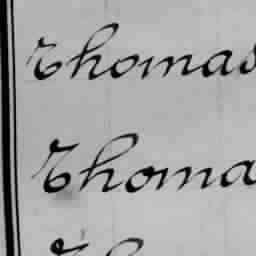 Thomas
Thoma
Th